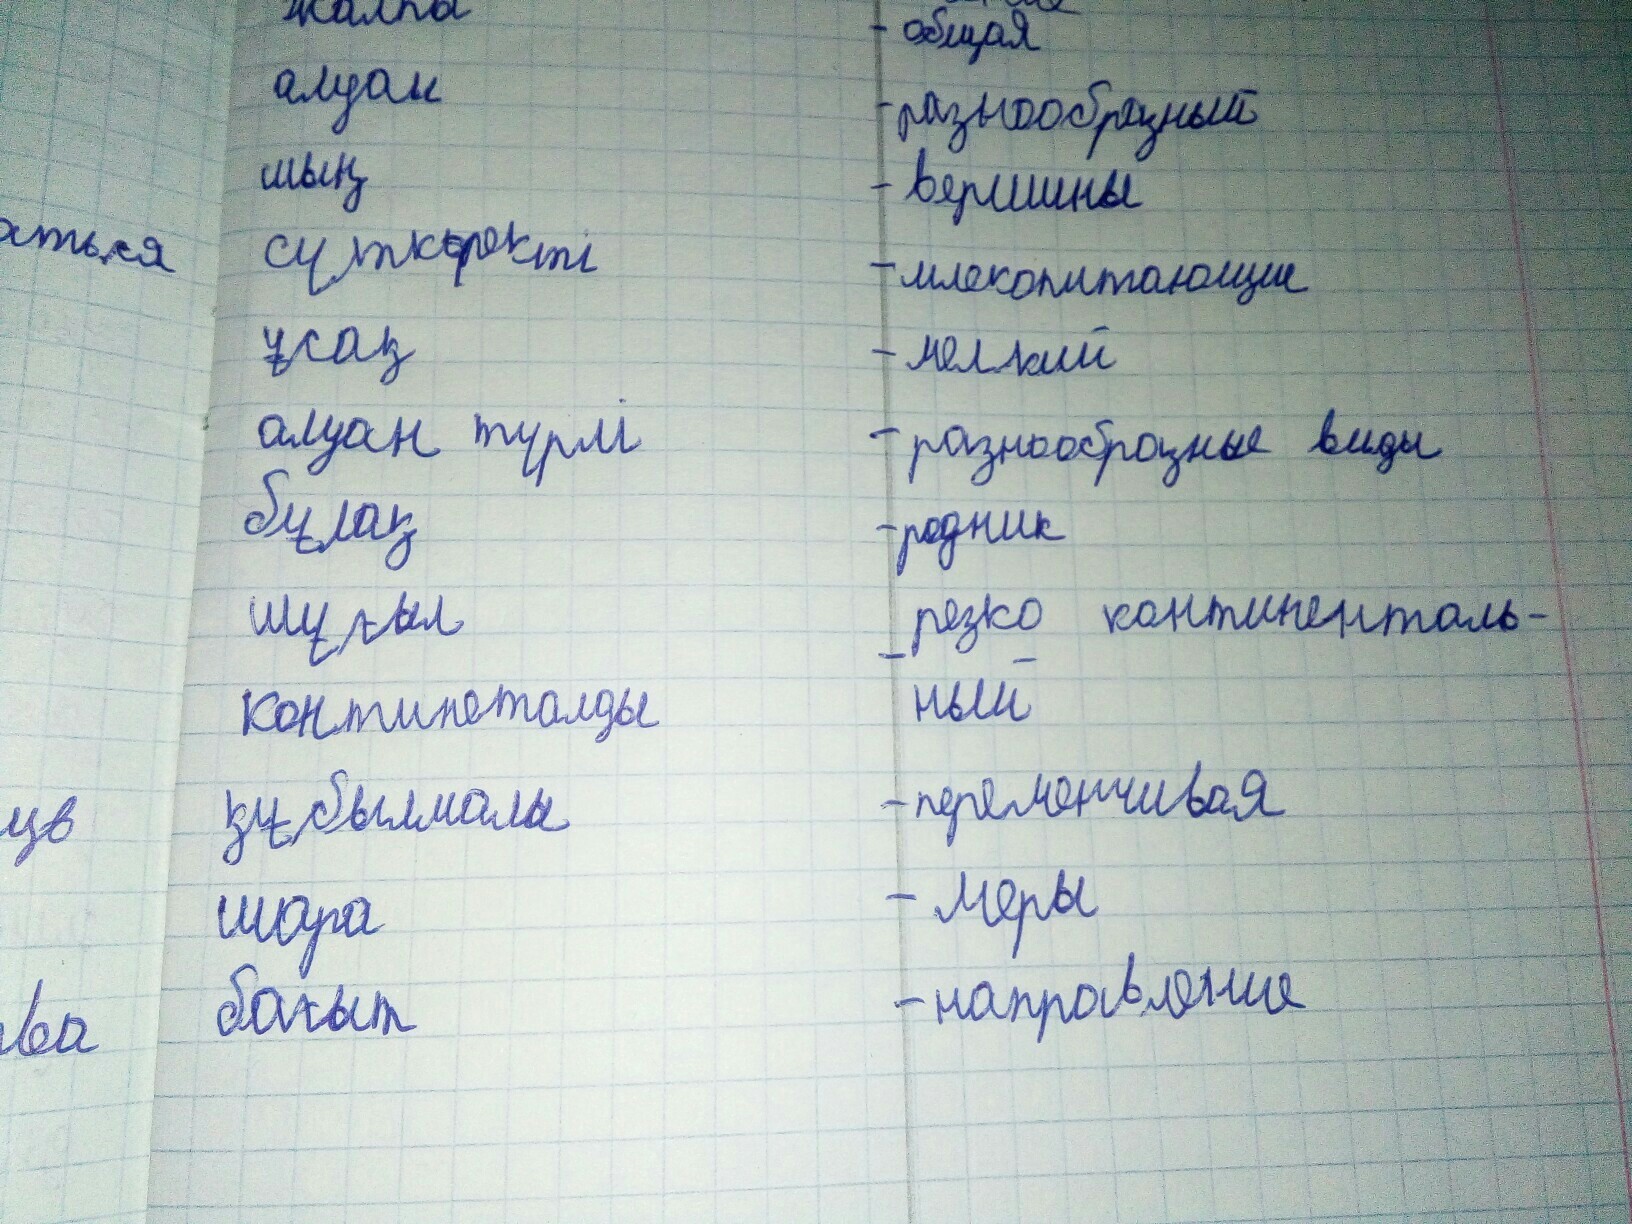 жалпы - общая
алуан - разнообразный
шың - вершины
сүтқоректі - млекопитающие
ұсақ - мелкий
алуан түрлі - разнообразные виды
бұлақ - родник
шұғыл - резко континенталь-
континеталды ный
құбылмалы - переменчивая
шара - меры
бағыт - направление
аться
цв
ва